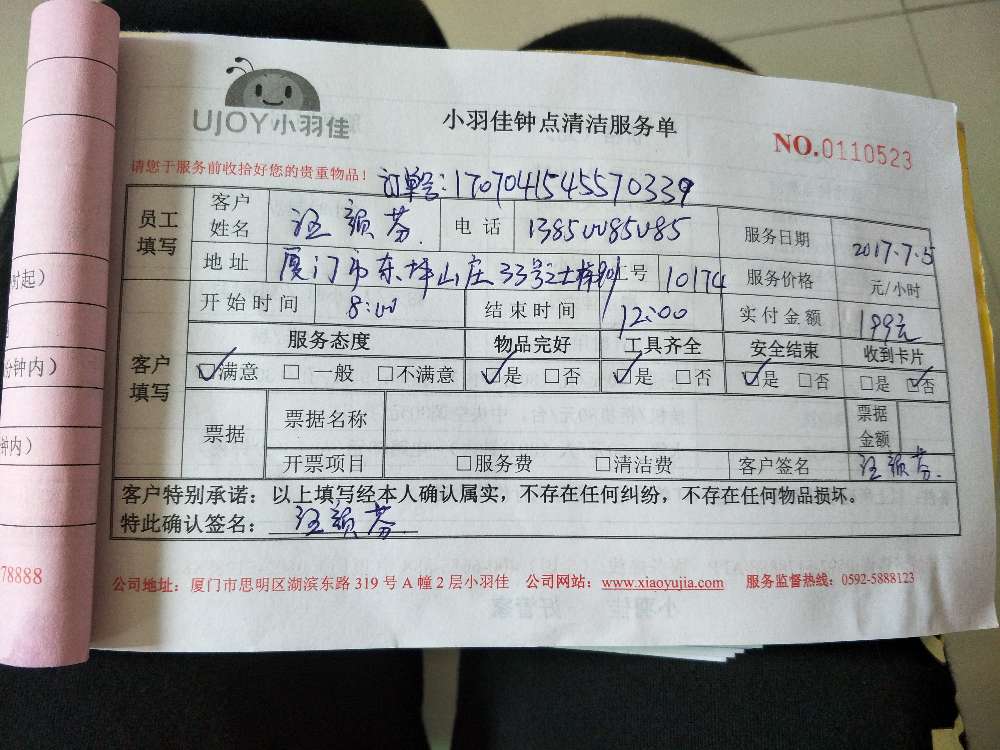 UJOY小羽佳
小羽佳钟点清洁服务单
NO.0110523
请您于服务前收拾好您的贵重物品！
订单号：1707041545570339
员工填写 客户姓名 汪颖芬 电话 13850085085 服务日期 2017.7.5
地址 厦门市东坪山庄33号 工号 10174 服务价格 元/小时
开始时间 8:00 结束时间 12:00 实付金额 199元
客户填写 服务态度 物品完好 工具齐全 安全结束 收到卡片
☑满意 □一般 □不满意 ☑是 □否 ☑是 □否 ☑是 □否 □是 ☑否
票据 票据名称 票据金额
开票项目 □服务费 □清洁费 客户签名 汪颖芬
客户特别承诺：以上填写经本人确认属实，不存在任何纠纷，不存在任何物品损坏。
特此确认签名：汪颖芬
公司地址：厦门市思明区湖滨东路 319 号 A 幢 2 层小羽佳 公司网站：www.xiaoyujia.com 服务监督热线：0592-5888123
时起）
分钟内）
钟内）
78888